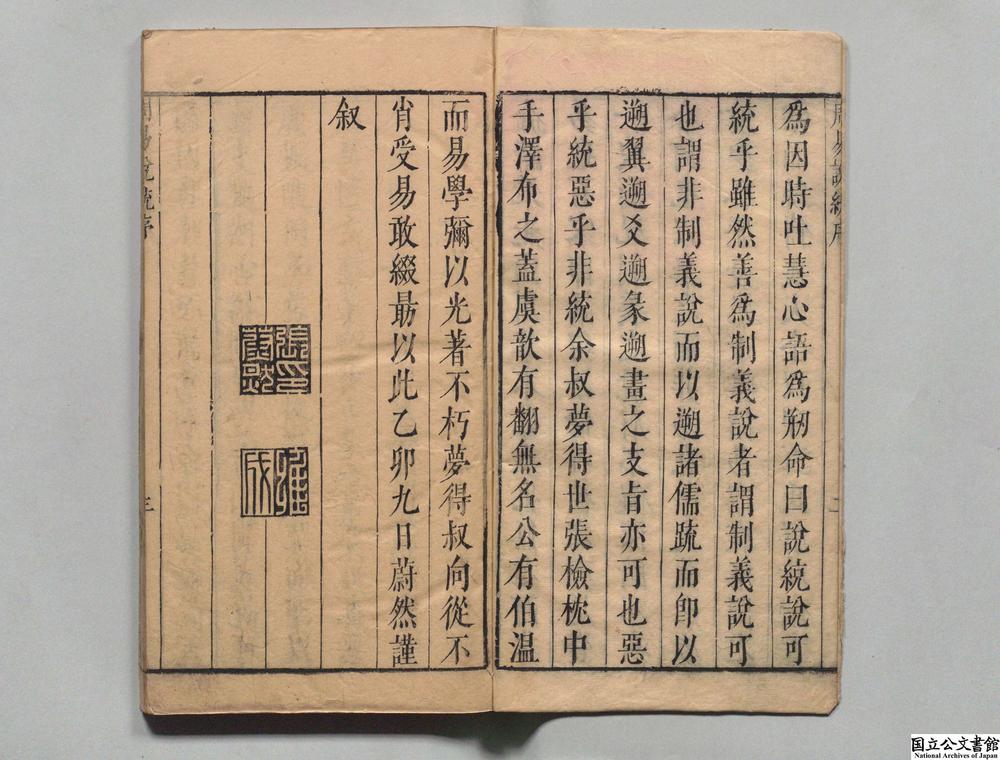 周易說統序
為因時吐慧心語為剏命曰說統說可
統乎雖然善為制義說者謂制義說可
也謂非制義說而以遡諸儒疏而卽以
遡翼遡爻遡彖遡畫之支旨亦可也惡
乎統惡乎非統余叔夢得世張檢枕中
手澤布之蓋虞歆有翻無名公有伯温
二
而易學彌以光著不朽夢得叔向從不
肖受易敢綴最以此乙卯九日蔚然謹
叙
張印
蔚然
維成
周易說統序
三
国立公文書館
National Archives of Japan